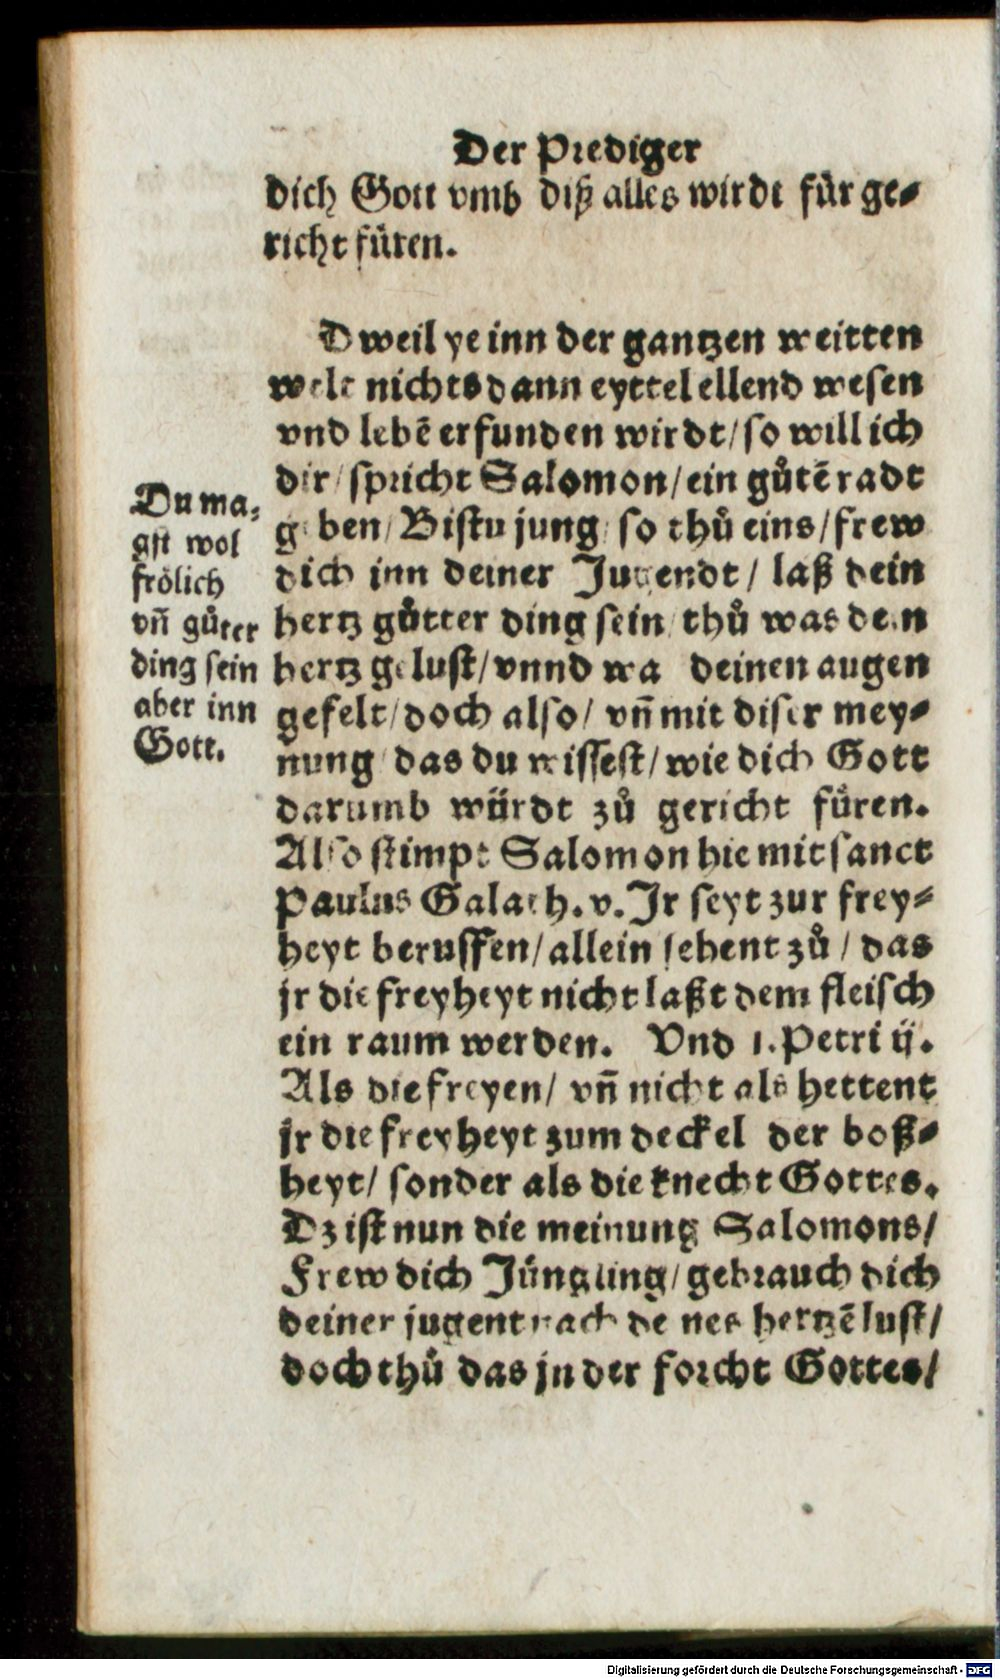 Der Prediger
dich Gott vmb diß alles wirdt für ge⸗
richt füren.
Dweil ye inn der gantzen weitten
welt nichts dann eyttel ellend wesen
vnd lebē erfunden wirdt/ so will ich
dir/ spricht Salomon/ ein gůtē radt
geben/ Bistu jung/ so thů eins/ frew
dich inn deiner Jugendt/ laß dein
hertz gůtter ding sein/ thů was dein
hertz gelust/ vnnd was deinen augen
gefelt/ doch also/ vñ mit diser mey⸗
nung/ das du wissest/ wie dich Gott
darumb würdt zů gericht füren.
Also stimpt Salomon hie mit sanct
Paulus Galath. v. Jr seyt zur frey⸗
heyt beruffen/ allein sehent zů/ das
jr die freyheyt nicht laßt dem fleisch
ein raum werden. Vnd 1. Petri ij.
Als die freyen/ vñ nicht als hettent
jr die freyheyt zum deckel der boß⸗
heyt/ sonder als die knecht Gottes.
Dz ist nun die meinung Salomons/
Frew dich Jüngling/ gebrauch dich
deiner jugent nach deines hertzē lust/
doch thů das jn der forcht Gottes/
Du ma⸗
gst wol
frölich
vñ gůter
ding sein
aber inn
Gott.
Digitalisierung gefördert durch die Deutsche Forschungsgemeinschaft - DFG